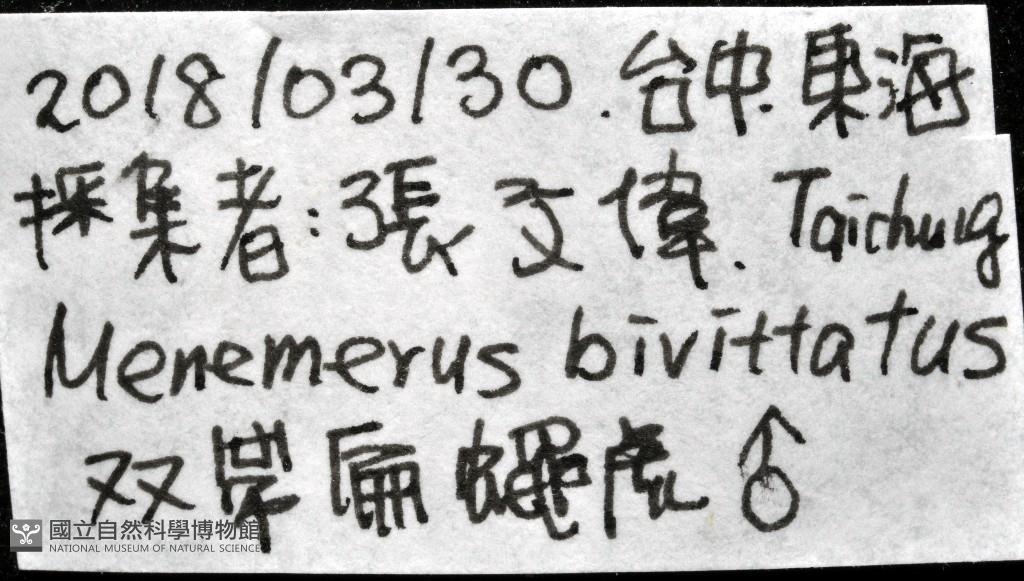 2018/03/30.台中.東海
採集者:張文偉. Taichung
Menemerus bivittatus
双带扁蠅虎♂
國立自然科學博物館
NATIONAL MUSEUM OF NATURAL SCIENCE